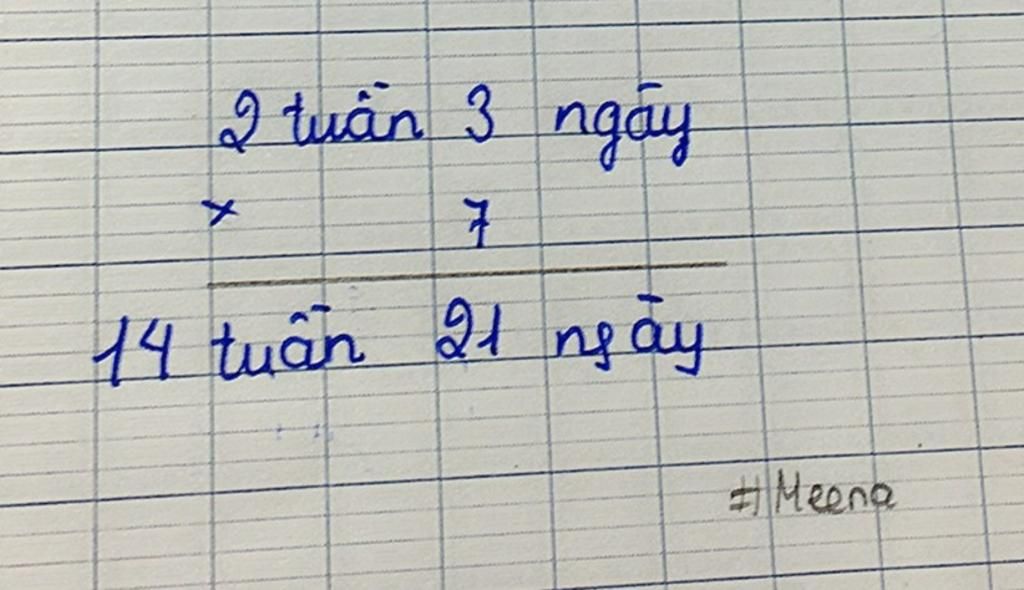 2 tuần 3 ngày
× 7
14 tuần 21 ngày
#Meena